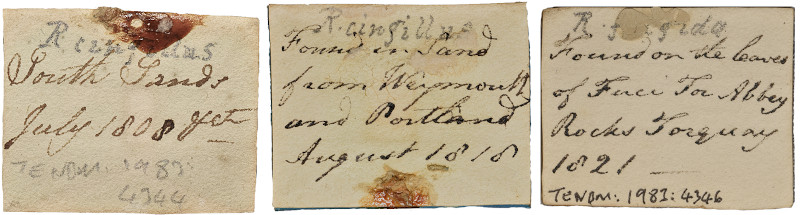 R. cingillus
South Sands
July 1808 &ct
TENBM: 1983:
4344
R. cingillus
Found in Sand
from Weymouth
and Portland
August 1818
R.
Found on the leaves
of Fuci Tor Abbey
Rocks Torquay
1821
TENBM: 1983: 4346